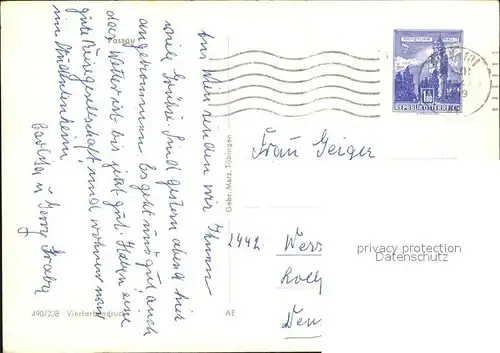 Passau
Aus Wien senden wir Ihnen
viele Grüße. Sind gestern abend hier
angekommen. Es geht uns gut, auch
das Wetter ist bis jetzt gut. Haben eine
gute Reisegesellschaft und wohnen
im Studentenheim
u. Gerry
490/238 Vierfarbendruck
AE
Gebr. Metz, Tübingen
MÜNZTURM HALL i. T.
1.80
REPUBLIK ÖSTERREICH
Frau Geiger
privacy protection
Datenschutz